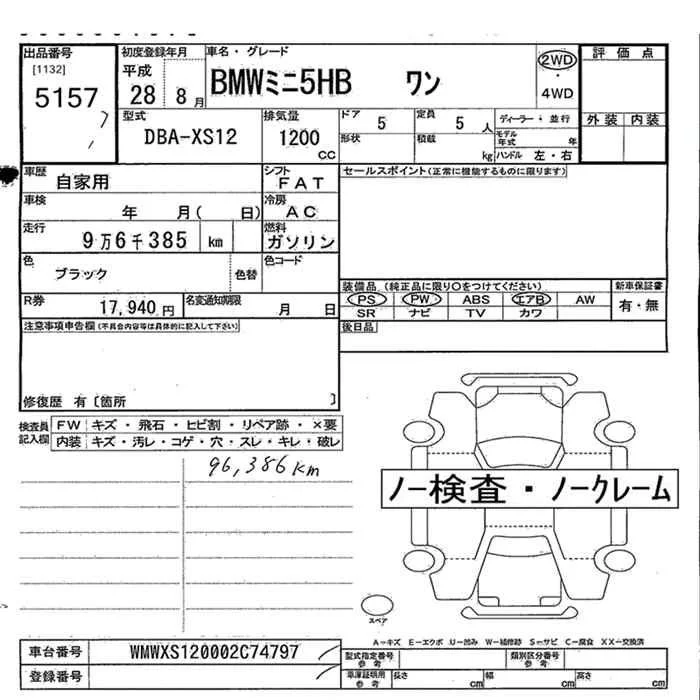 出品番号 初度登録年月 車名・グレード 評価点
[1132] 平成 BMWミニ5HB ワン 2WD
5157 28 8月 ・ 4WD
型式 排気量 ドア 5 定員 5人 ディーラー・並行 外装 内装
DBA-XS12 1200cc 形状 積載 kg モデル年式 年
ハンドル 左・右
車歴 自家用 シフト FAT セールスポイント(正常に機能するものに限ります)
車検 年 月( 日) 冷房 AC
走行 9万6千385 km 燃料 ガソリン
色 ブラック 色替 色コード
装備品 (純正品に限り○をつけてください) 新車保証書
R券 17,940円 名変通知期限 月 日 PS PW ABS エアB AW 有・無
SR ナビ TV カワ
注意事項申告欄 (不具合内容等は具体的に記入して下さい) 後日品
修復歴 有〔箇所 〕
検査員記入欄 FW キズ・飛石・ヒビ割・リペア跡・×要
内装 キズ・汚レ・コゲ・穴・スレ・キレ・破レ
96,386km
ノー検査・ノークレーム
スペア
A-キズ E-エクボ U-凹み W-補修跡 S-サビ C-腐食 XX-交換済
車台番号 WMWXS120002C74797 型式指定番号 参考 類別区分番号 参考
登録番号 車庫証明用 参考 長さ cm 幅 cm 高さ cm